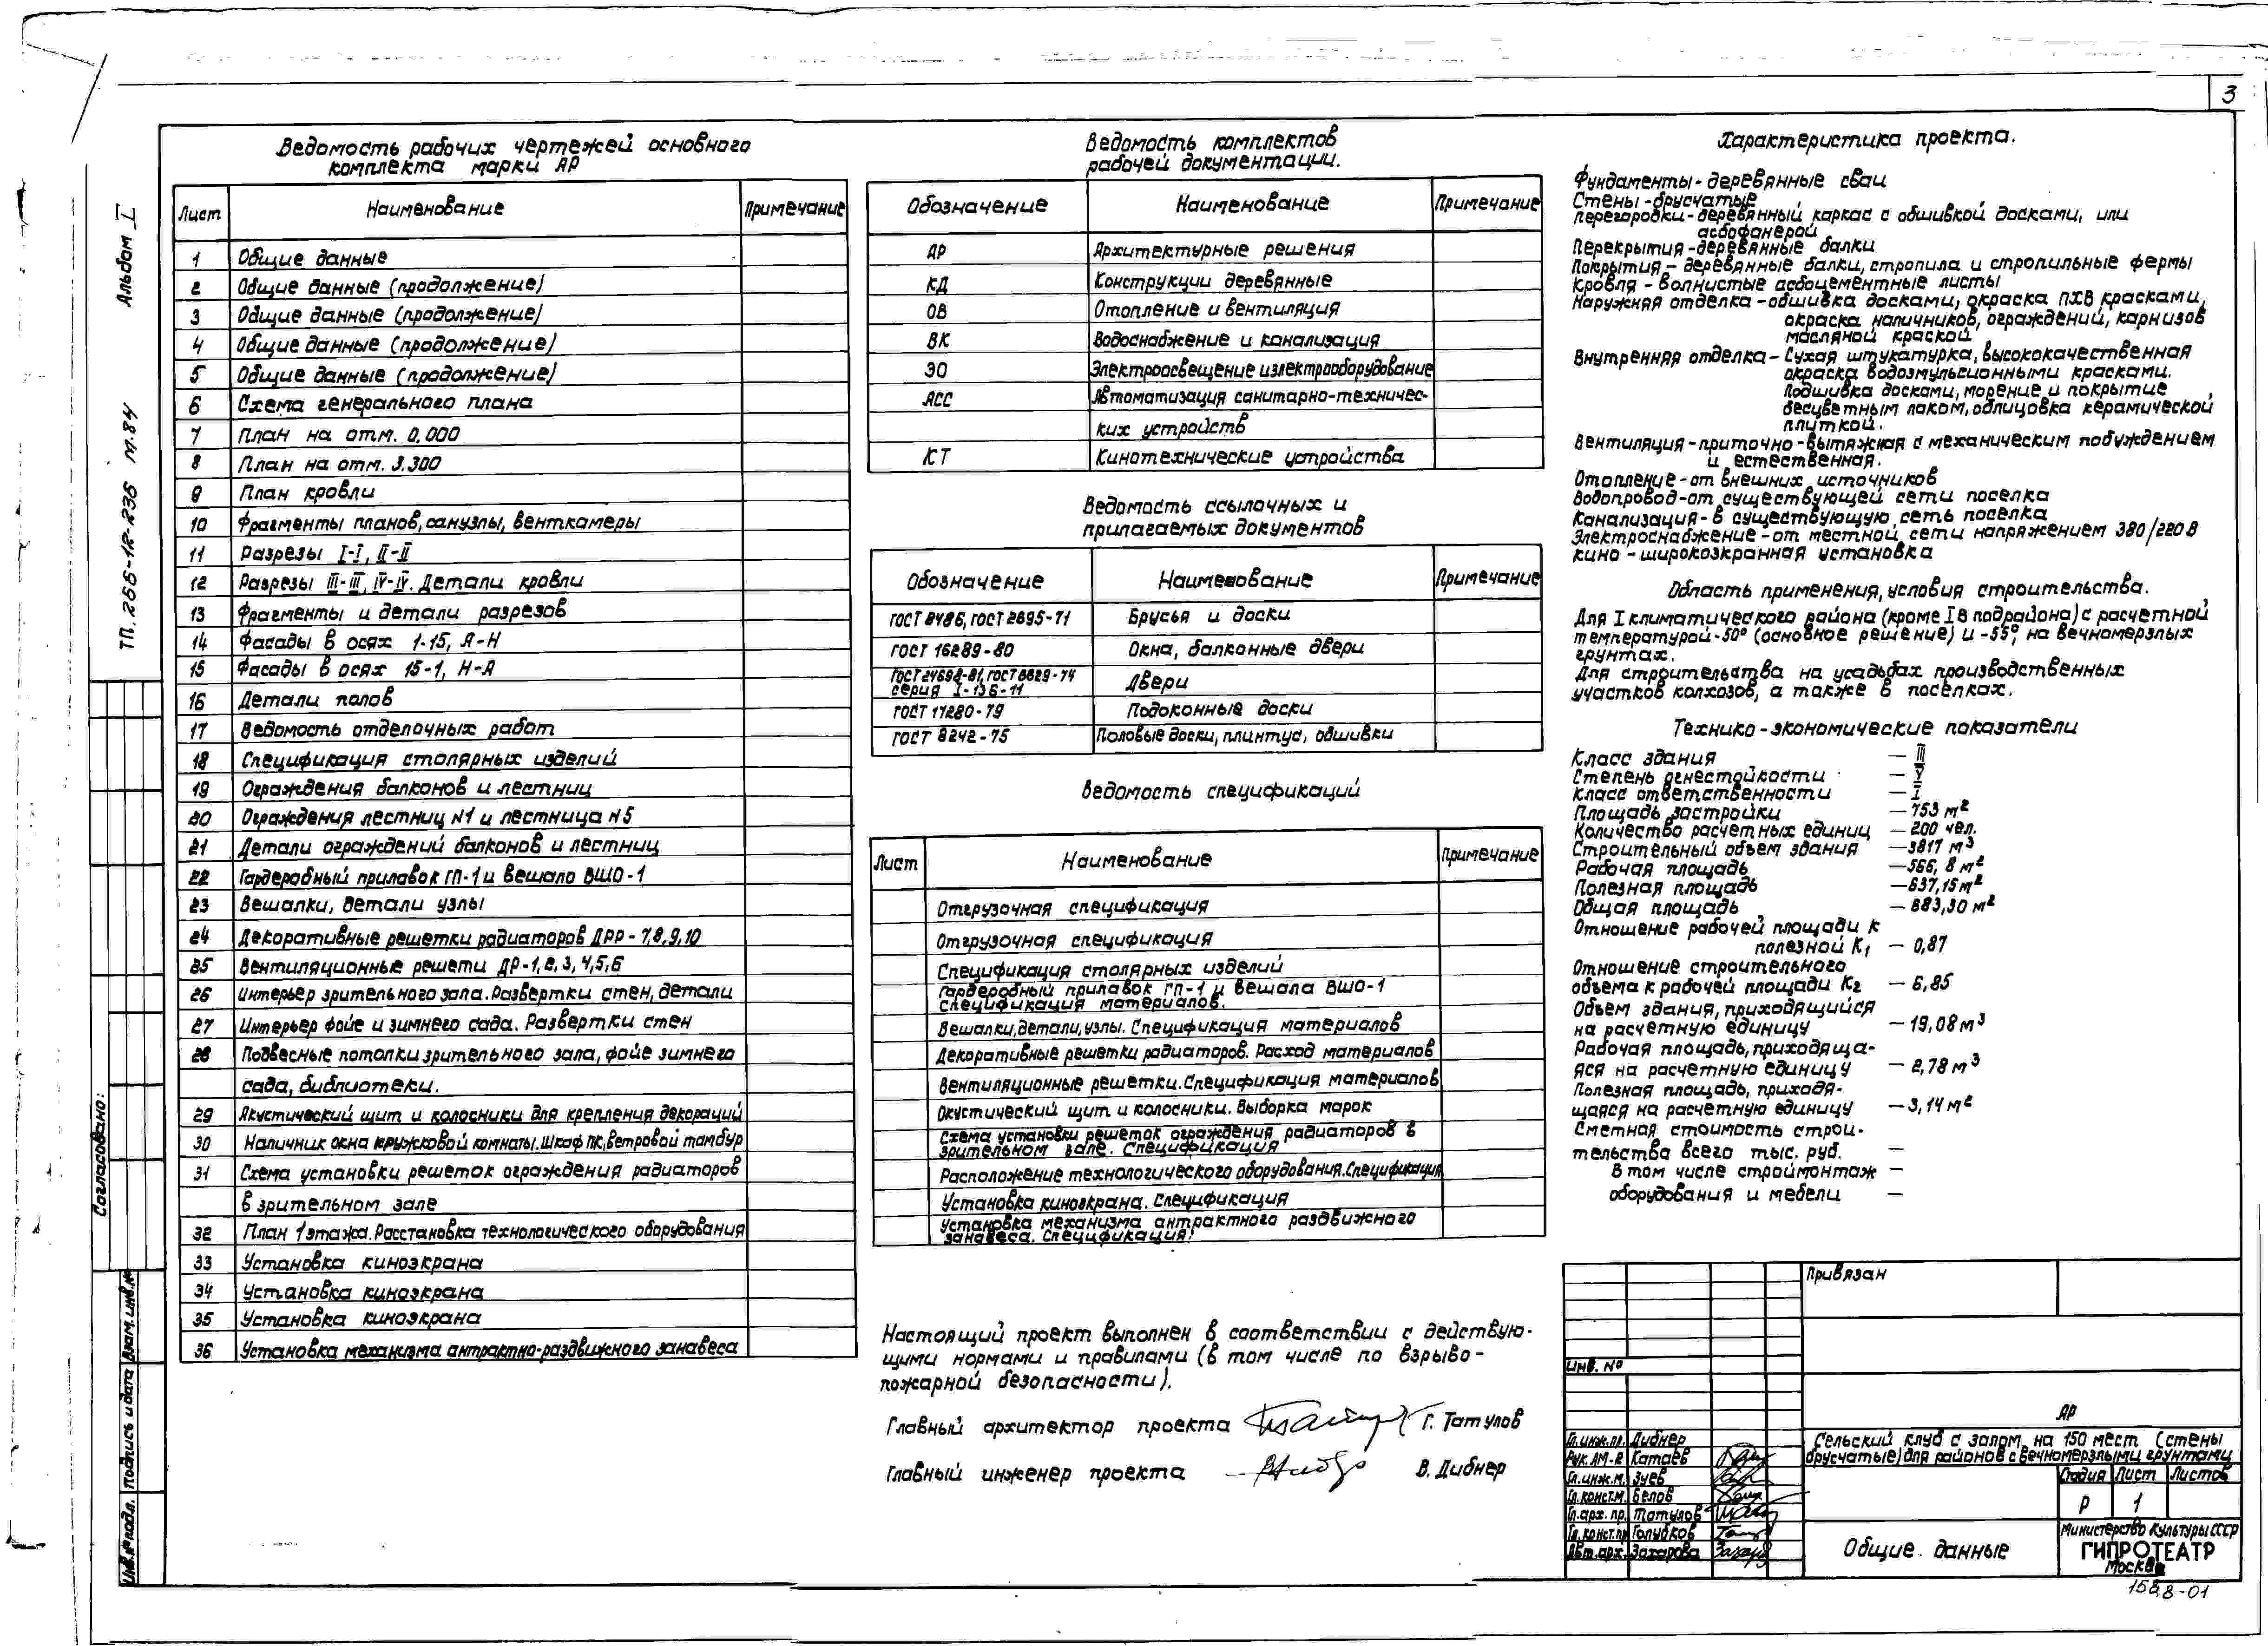 3
Альбом I
ТП. 266-12-236 м.84
Согласовано:
Взам. инв.№
Подпись и дата
Инв.№ подл.
Ведомость рабочих чертежей основного
комплекта марки АР
Лист Наименование Примечание
1 Общие данные
2 Общие данные (продолжение)
3 Общие данные (продолжение)
4 Общие данные (продолжение)
5 Общие данные (продолжение)
6 Схема генерального плана
7 План на отм. 0,000
8 План на отм. 3.300
9 План кровли
10 Фрагменты планов, санузлы, венткамеры
11 Разрезы I-I, II-II
12 Разрезы III-III, IV-IV. Детали кровли
13 Фрагменты и детали разрезов
14 Фасады в осях 1-15, А-Н
15 Фасады в осях 15-1, Н-А
16 Детали полов
17 Ведомость отделочных работ
18 Спецификация столярных изделий
19 Ограждения балконов и лестниц
20 Ограждения лестниц N1 и лестница N5
21 Детали ограждений балконов и лестниц
22 Гардеробный прилавок ГП-1 и вешало ВШО-1
23 Вешалки, детали узлы
24 Декоративные решетки радиаторов ДРР-7,8,9,10
25 Вентиляционные решети ДР-1,2,3,4,5,6
26 Интерьер зрительного зала. Развертки стен, детали
27 Интерьер фойе и зимнего сада. Развертки стен
28 Подвесные потолки зрительного зала, фойе зимнего
сада, библиотеки.
29 Акустический щит и колосники для крепления декораций
30 Наличник окна кружковой комнаты. Шкаф ПК, ветровой тамбур
31 Схема установки решеток ограждения радиаторов
в зрительном зале
32 План 1 этажа. Расстановка технологического оборудования
33 Установка киноэкрана
34 Установка киноэкрана
35 Установка киноэкрана
36 Установка механизма антрактно-раздвижного занавеса
Ведомость комплектов
рабочей документации.
Обозначение Наименование Примечание
АР Архитектурные решения
КД Конструкции деревянные
ОВ Отопление и вентиляция
ВК Водоснабжение и канализация
ЭО Электроосвещение и электрооборудование
АСС Автоматизация санитарно-техничес-
ких устройств
КТ Кинотехнические устройства
Ведомость ссылочных и
прилагаемых документов
Обозначение Наименование Примечание
ГОСТ 8486, ГОСТ 2695-71 Брусья и доски
ГОСТ 16289-80 Окна, балконные двери
ГОСТ 24698-81, ГОСТ 6629-74
серия I-136-11 Двери
ГОСТ 17280-79 Подоконные доски
ГОСТ 8242-75 Половые доски, плинтус, обшивки
Ведомость спецификаций
Лист Наименование Примечание
Отгрузочная спецификация
Отгрузочная спецификация
Спецификация столярных изделий
Гардеробный прилавок ГП-1 и вешала ВШО-1
спецификация материалов.
Вешалки, детали, узлы. Спецификация материалов
Декоративные решетки радиаторов. Расход материалов
Вентиляционные решетки. Спецификация материалов
Акустический щит и колосники. Выборка марок
Схема установки решеток ограждения радиаторов в
зрительном зале. Спецификация
Расположение технологического оборудования. Спецификация
Установка киноэкрана. Спецификация
Установка механизма антрактного раздвижного
занавеса. Спецификация.
Настоящий проект выполнен в соответствии с действую-
щими нормами и правилами (в том числе по взрыво-
пожарной безопасности).
Главный архитектор проекта Г. Татулов
Главный инженер проекта В. Дибнер
Характеристика проекта.
Фундаменты-деревянные сваи
Стены-брусчатые
перегородки-деревянный каркас с обшивкой досками, или
асбофанерой
Перекрытия-деревянные балки
Покрытия - деревянные балки, стропила и стропильные фермы
Кровля - волнистые асбоцементные листы
Наружняя отделка-обшивка досками, окраска ПХВ красками,
окраска наличников, ограждений, карнизов
масляной краской
Внутренняя отделка-Сухая штукатурка, высококачественная
окраска водоэмульсионными красками.
Подшивка досками, морение и покрытие
бесцветным лаком, облицовка керамической
плиткой.
Вентиляция-приточно-вытяжная с механическим побуждением
и естественная.
Отопление-от внешних источников
Водопровод-от существующей сети поселка
Канализация-в существующую сеть поселка
Электроснабжение-от местной сети напряжением 380/220 В
кино - широкоэкранная установка
Область применения, условия строительства.
Для I климатического района (кроме IВ подрайона) с расчетной
температурой-50° (основное решение) и -55°, на вечномерзлых
грунтах.
Для строительства на усадьбах производственных
участков колхозов, а также в поселках.
Технико-экономические показатели
Класс здания — III
Степень огнестойкости — V
Класс ответственности — I
Площадь застройки — 753 м²
Количество расчетных единиц — 200 чел.
Строительный объем здания — 3817 м³
Рабочая площадь — 566, 8 м²
Полезная площадь — 637,15 м²
Общая площадь — 883,30 м²
Отношение рабочей площади к
полезной К1 — 0,87
Отношение строительного
объема к рабочей площади К2 — 6,85
Объем здания, приходящийся
на расчетную единицу — 19,08 м³
Рабочая площадь, приходяща-
яся на расчетную единицу — 2,78 м³
Полезная площадь, приходя-
щаяся на расчетную единицу — 3,14 м²
Сметная стоимость строи-
тельства всего тыс. руб. —
В том числе строймонтаж —
оборудования и мебели —
Привязан
Инв. №
АР
Гл.инж.пр. Дибнер
Рук.АМ-2 Катаев
Гл.инж.м. Зуев
Гл.конст.м. Белов
Гл.арх. пр. Татулов
Гл.конст.пр Голубков
Авт.арх. Захарова
Сельский клуб с залом на 150 мест (стены
брусчатые) для районов с вечномерзлыми грунтами
Стадия Лист Листов
Р 1
Общие данные
Министерство культуры СССР
ГИПРОТЕАТР
Москва